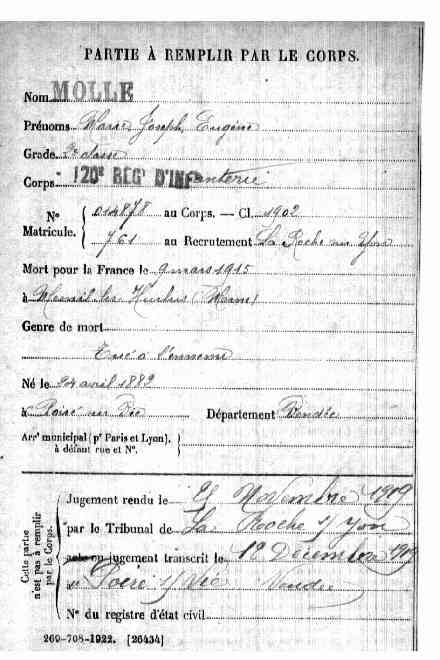 PARTIE À REMPLIR PAR LE CORPS.
Nom MOLLE
Prénoms Marie Joseph Eugène
Grade 2e classe
Corps 120e REGt D'INFanterie
N° Matricule. { 014878 au Corps. — Cl. 1902
761 au Recrutement La Roche sur Yon
Mort pour la France le 9 mars 1915
à Mesnil les Hurlus (Marne)
Genre de mort
Tué à l'ennemi
Né le 24 avril 1882
à Poiré sur Vie Département Vendée
Arrt municipal (pr Paris et Lyon),
à défaut rue et N°.
Cette partie n'est pas à remplir par le Corps.
Jugement rendu le Novembre 1919
par le Tribunal de La Roche s/ Yon
acte ou jugement transcrit le 12 Décembre 1919
à Poiré s/ Vie Vendée
N° du registre d'état civil
260-708-1922. [26434]